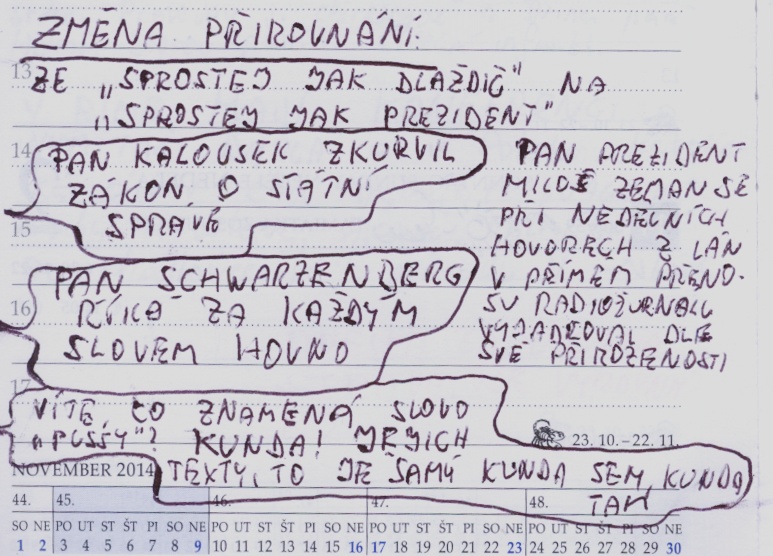 ZMĚNA PŘIROVNÁNÍ:
13
ZE „SPROSTEJ JAK DLAŽDIČ" NA
„SPROSTEJ JAK PREZIDENT"
14
PAN KALOUSEK ZKURVIL
ZÁKON O STÁTNÍ
SPRÁVĚ
15
PAN SCHWARZENBERG
ŘÍKÁ ZA KAŽDÝM
16
SLOVEM HOVNO
PAN PREZIDENT
MILOŠ ZEMAN SE
PŘI NEDĚLNÍCH
HOVORECH Z LÁN
V PŘÍMÉM PŘENO-
SU RADIOŽURNÁLU
VYJADŘOVAL DLE
SVÉ PŘIROZENOSTI
17
VÍTE, CO ZNAMENÁ SLOVO
„PUSSY"? KUNDA! JEJICH
TEXTY, TO JE SAMÝ KUNDA SEM, KUNDA
TAM
23. 10. – 22. 11.
NOVEMBER 2014
44. 45. 46. 47. 48.
SO NE PO UT ST ŠT PI SO NE PO UT ST ŠT PI SO NE PO UT ST ŠT PI SO NE PO UT ST ŠT PI SO NE
1 2 3 4 5 6 7 8 9 10 11 12 13 14 15 16 17 18 19 20 21 22 23 24 25 26 27 28 29 30